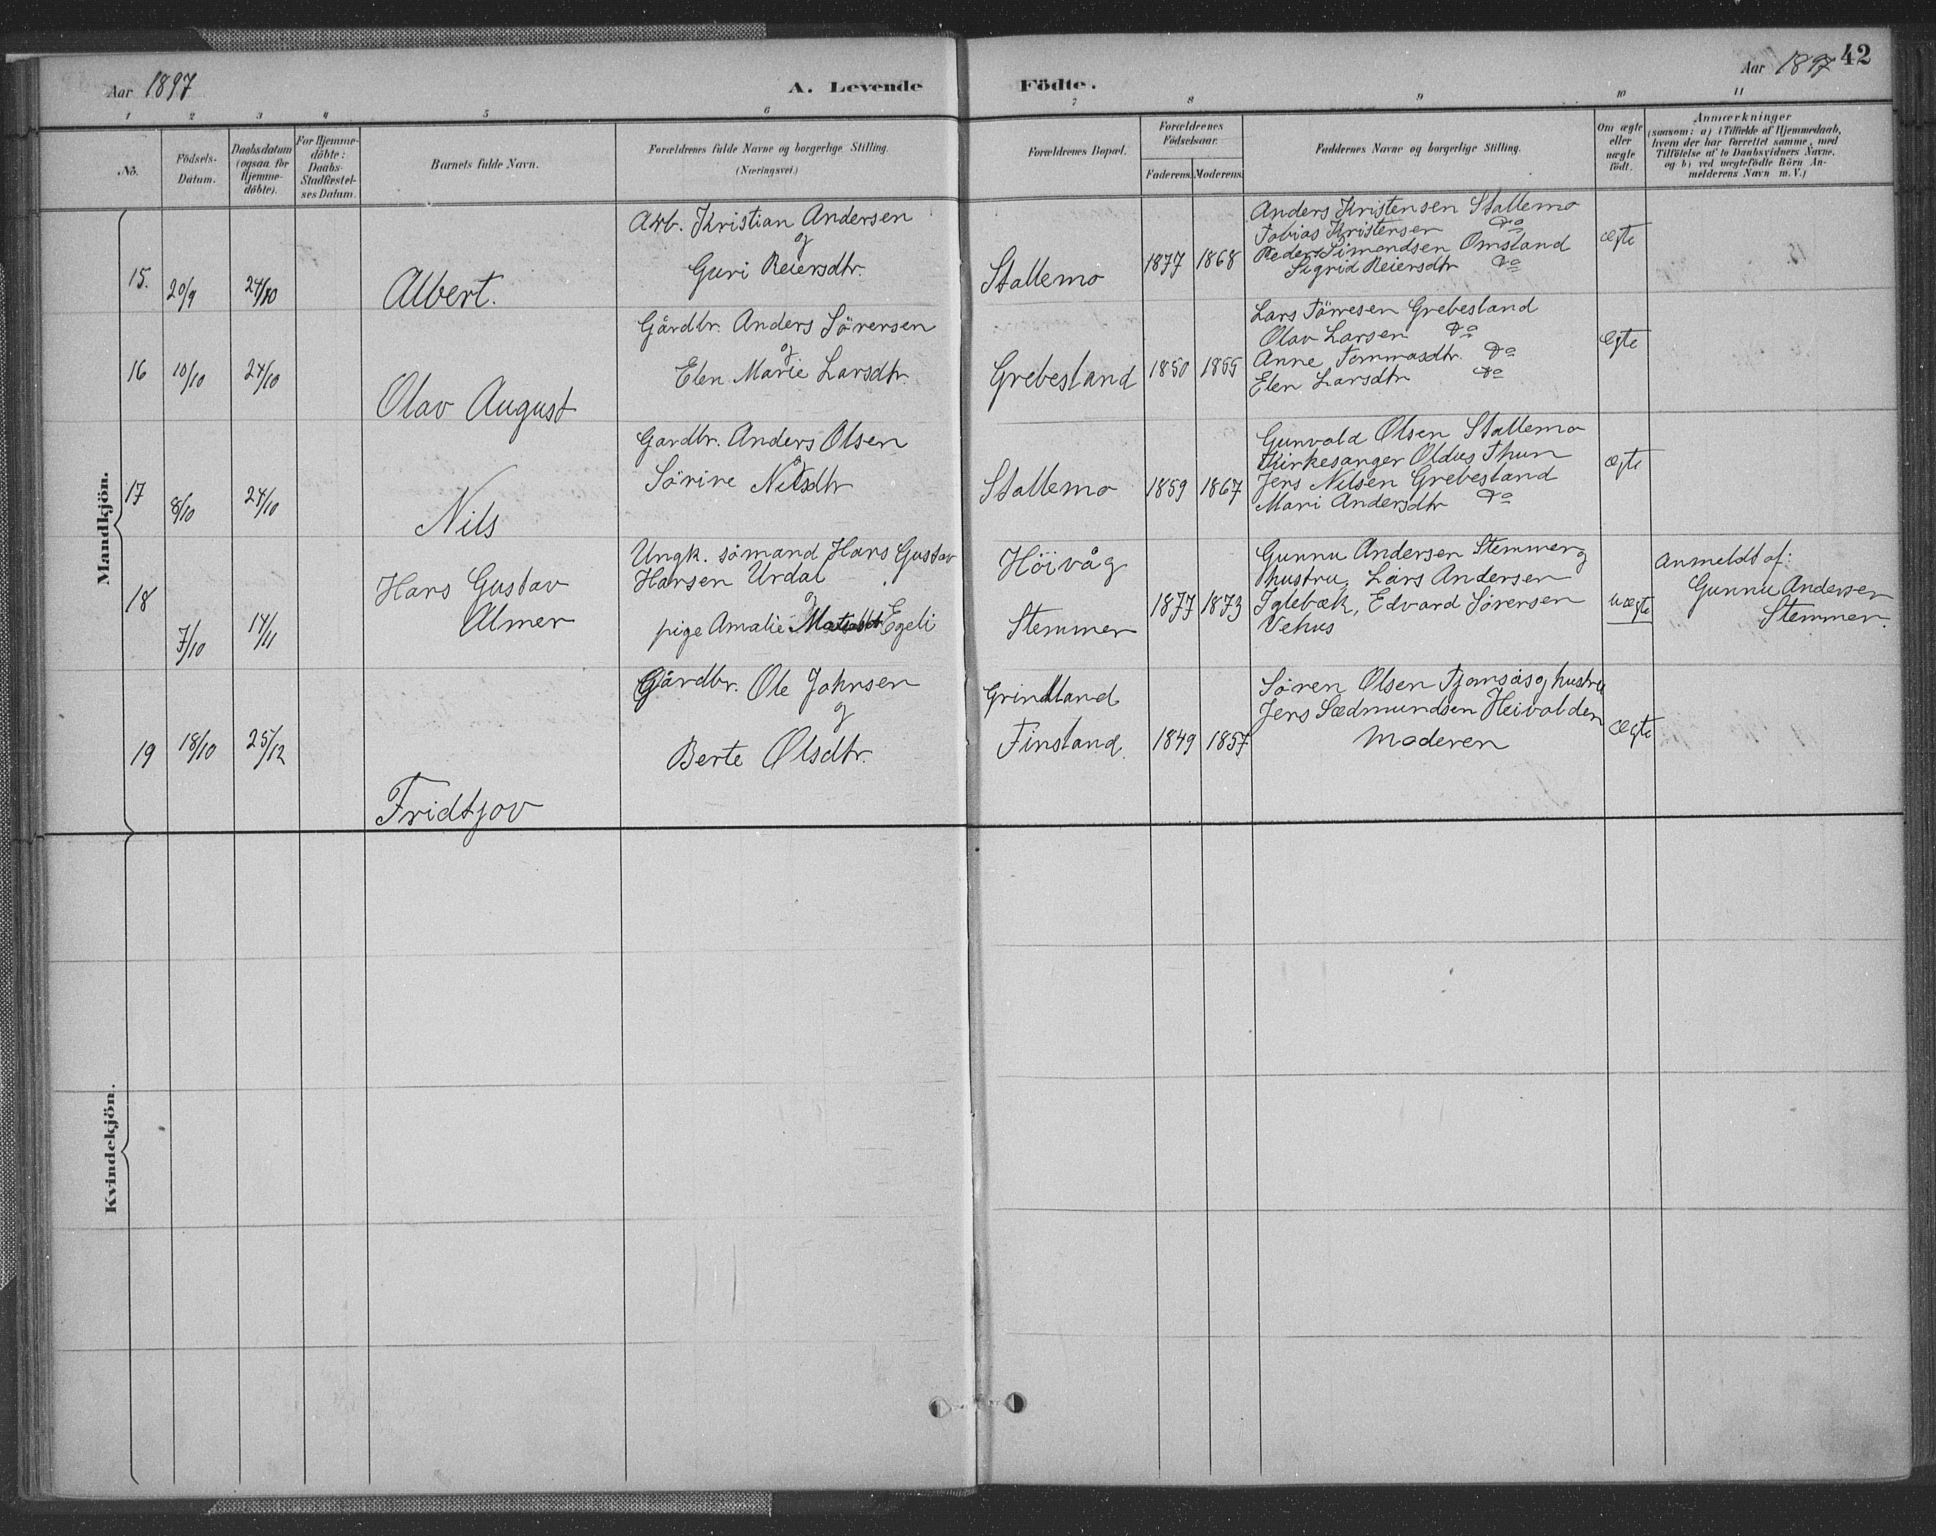 Aar 1897
A. Levende Födte.
Aar 1897 42
1 2 3 4 5 6 7 8 9 10 11
No.
Födsels-Datum.
Daabsdatum (ogsaa for Hjemme-döbte).
For Hjemme-döbte: Daabs-Stadfæstel-ses Datum.
Barnets fulde Navn.
Forældrenes fulde Navne og borgerlige Stilling.
(Næringsvei.)
Forældrenes Bopæl.
Forældrenes Födselsaar.
Faderens. Moderens.
Faddernes Navne og borgerlige Stilling.
Om ægte eller uægte födt.
Anmærkninger
(saasom: a) i Tilfælde af Hjemmedaab,
hvem der har forrettet samme, med
Tilföielse af to Daabsvidners Navne,
og b) ved uægtefödte Börn An-
melderens Navn m. V.)
Mandkjön.
15. 20/9 24/10 Albert.
Arb. Kristian Andersen
og
Guri Reiersdtr.
Stallemo 1877 1868
Anders Kristensen Stallemo
Tobias Kristensen Do
Peder Simondsen Omsland
Sigrid Reiersdtr Do
Ægte
16 10/10 24/10 Olav August
Gårdbr. Anders Sörensen
og
Elen Marie Larsdtr.
Grebesland 1850 1855
Lars Törresen Grebesland
Olav Larsen Do
Anne Tommasdtr. Do
Elen Larsdtr Do
Ægte
17 8/10 24/10 Nils
Gardbr. Anders Olsen
og
Sörine Nilsdtr
Stallemo 1859 1867
Gunvald Olsen Stallemo
Kirkesanger Oldus Thun
Jens Nilsen Grebesland
Mari Andersdtr Do
Ægte
18 7/10 14/11 Hans Gustav
Almer
Ungk. sömand Hans Gustav
Hansen Urdal
og
pige Amalie Egeli
Höivåg
Stemmer 1877 1873
Gunnu Andersen Stemmer og
hustru, Lars Andersen
Iglebæk, Edvard Sörensen
Vehus
uægte
Anmeldt af:
Gunnu Andersen
Stemmer.
19 18/10 25/12 Fridtjov
Gårdbr. Ole Johnsen
og
Berte Olsdtr.
Grindland
Finsland. 1849 1857
Sören Olsen Tjomsås og hustru
Jens Sædmundsen Heivolden
Moderen
Ægte
Kvindekjön.